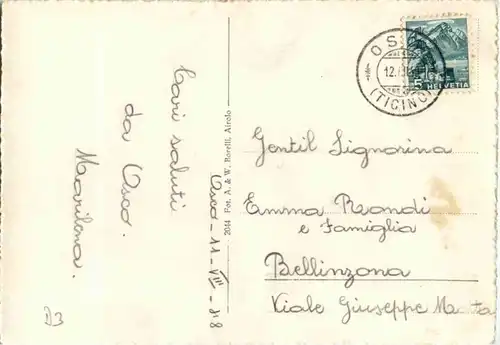 Cari saluti
da Osco.
Marilena.
Osco - 11 - VIII - 38
2044 Fot. A. & W. Borelli, Airolo
OSCO
12.
(TICINO)
5
HELVETIA
Gentil Signorina
Emma
e Famiglia
Bellinzona
Viale Giuseppe Motta